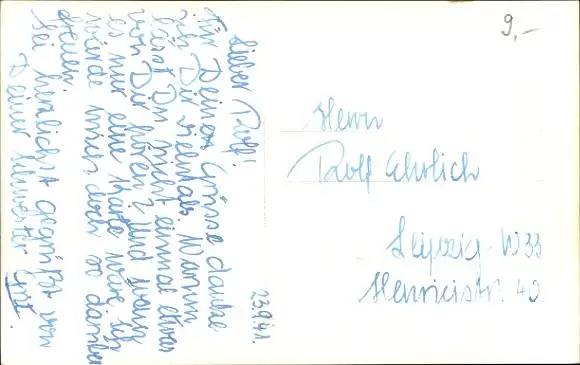 23.9.41.
Lieber Rolf!
Für Deinen Grüsse danke
ich Dir vielmals. Warum
lässt Du nicht einmal etwas
von Dir hören? Und wenn
es nur eine Karte wäre, ich
würde mich doch so darüber
freuen.
Sei herzlichst gegrüßt von
Deiner Schwester
Herrn
Rolf Ehrlich
Leipzig-W33
Henricistr. 40
9,-